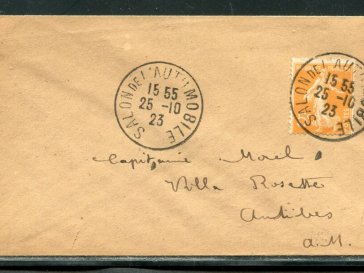 SALON DE L'AUTOMOBILE
15 55
25 -10
23
SALON DE L'AUT
15 5
25 -10
23
BILE
Capitaine Morel
Villa Rosette
Antibes
a.M.